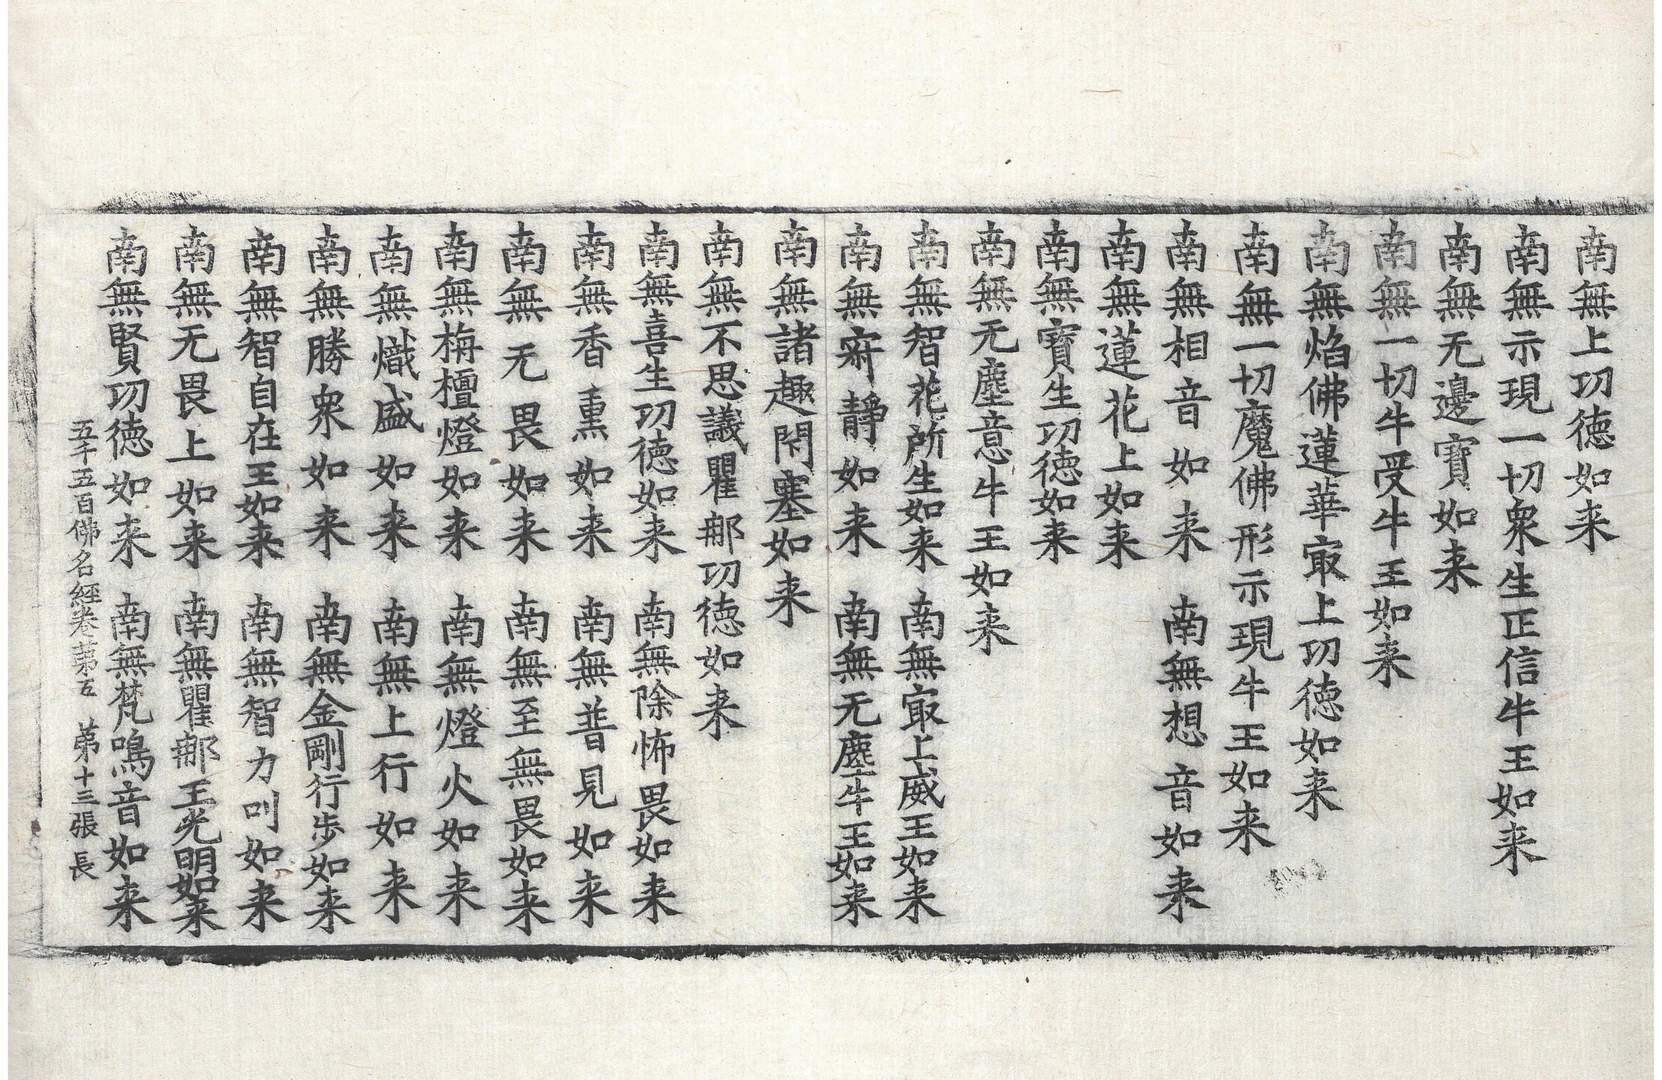 南無上功德如来
南無示現一切衆生正信牛王如来
南無无邊寶如来
南無一切牛受牛王如来
南無焰佛蓮華冣上功德如来
南無一切魔佛形示現牛王如来
南無相音如来 南無想音如来
南無蓮花上如来
南無寶生功德如来
南無无塵意牛王如来
南無智花所生如来 南無冣上威王如来
南無寂靜如来 南無无塵牛王如来
南無諸趣閇塞如来
南無不思議瞿䣯功德如来
南無喜生功德如来 南無除怖畏如来
南無香熏如来 南無普見如来
南無无畏如来 南無至無畏如来
南無栴檀燈如来 南無燈火如来
南無熾盛如来 南無上行如来
南無勝衆如来 南無金剛行步如来
南無智自在王如来 南無智力吅如来
南無无畏上如来 南無瞿䣯王光明如来
南無賢功德如来 南無梵鳴音如来
五千五百佛名經卷苐五 苐十三張 長